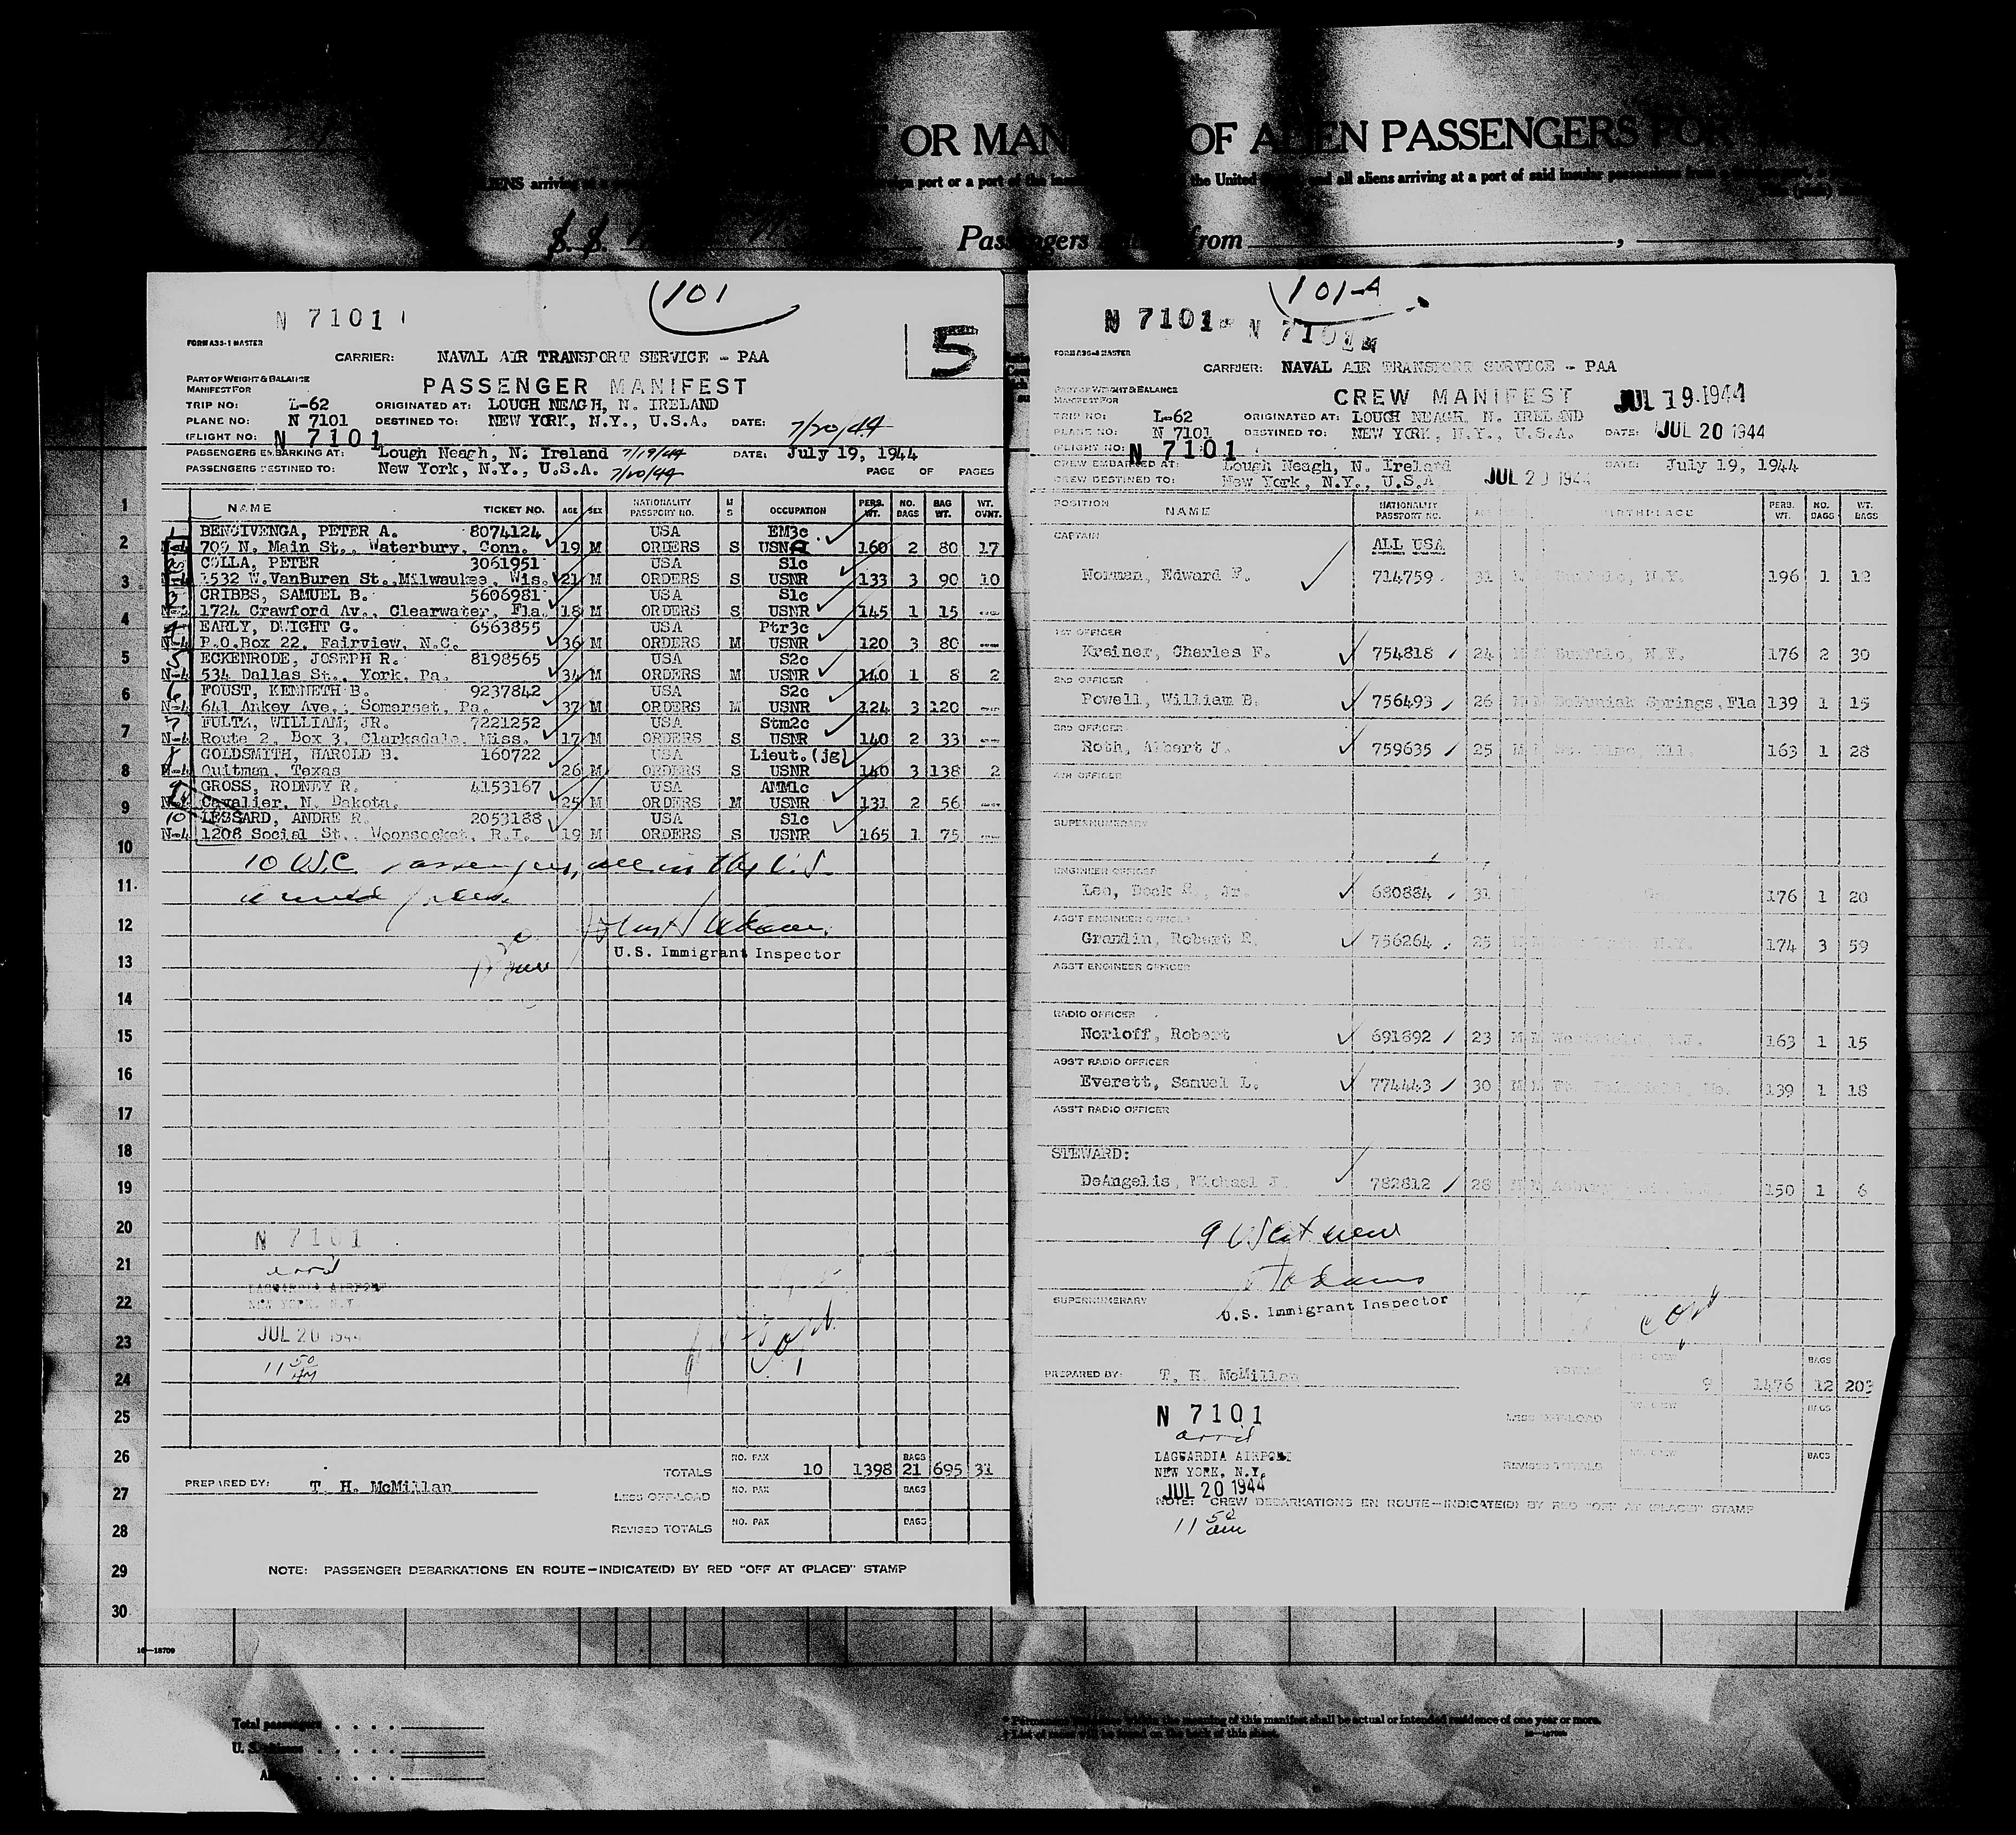 OR MAN OF ALIEN PASSENGERS FOR
ALIENS arriving at a port or a port of the the United and all aliens arriving at a port of said insular possessions
S. S. Passengers from
101
N 7101
5
FORM A35-1 MASTER
CARRIER: NAVAL AIR TRANSPORT SERVICE - PAA
PART OF WEIGHT & BALANCE
MANIFEST FOR
PASSENGER MANIFEST
TRIP NO: L-62 ORIGINATED AT: LOUGH NEAGH, N. IRELAND
PLANE NO: N 7101 DESTINED TO: NEW YORK, N.Y., U.S.A. DATE: 7/20/44
(FLIGHT NO: N 7101
PASSENGERS EMBARKING AT: Lough Neagh, N. Ireland 7/19/44 DATE: July 19, 1944
PASSENGERS DESTINED TO: New York, N.Y., U.S.A. 7/20/44 PAGE OF PAGES
NAME TICKET NO. AGE SEX NATIONALITY PASSPORT NO. M S OCCUPATION PERS. WT. NO. BAGS BAG WT. WT. OVNT.
1 BENCIVENGA, PETER A. 8074124 USA EM3c
N-4 709 N. Main St., Waterbury, Conn. 19 M ORDERS S USNR 160 2 80 17
2 COLLA, PETER 3061951 USA S1c
N-4 1532 W.VanBuren St.,Milwaukee, Wis. 21 M ORDERS S USNR 133 3 90 10
3 CRIBBS, SAMUEL B. 5606981 USA S1c
N-4 1724 Crawford Av., Clearwater, Fla. 18 M ORDERS S USNR 145 1 15 --
4 EARLY, DWIGHT G. 6563855 USA Ptr3c
N-4 P.O.Box 22, Fairview, N.C. 36 M ORDERS M USNR 120 3 80 --
5 ECKENRODE, JOSEPH R. 8198565 USA S2c
N-4 534 Dallas St., York, Pa. 34 M ORDERS M USNR 140 1 8 2
6 FOUST, KENNETH B. 9237842 USA S2c
N-4 641 Ankey Ave., Somerset, Pa. 37 M ORDERS M USNR 124 3 120 --
7 FULTZ, WILLIAM, JR. 7221252 USA Stm2c
N-4 Route 2, Box 3, Clarksdale, Miss. 17 M ORDERS S USNR 140 2 33 --
8 GOLDSMITH, HAROLD B. 160722 USA Lieut.(jg)
N-4 Quitman, Texas 26 M ORDERS S USNR 140 3 138 2
9 GROSS, RODNEY R. 4153167 USA AMM1c
N-4 Cavalier, N. Dakota. 25 M ORDERS M USNR 131 2 56 --
10 LESSARD, ANDRE R. 2053188 USA S1c
N-4 1208 Social St., Woonsocket, R.I. 19 M ORDERS S USNR 165 1 75 --
10 USC passengers, all in the U.S.
armed forces.
U.S. Immigrant Inspector
N 7101
arrd
LAGUARDIA AIRPORT
NEW YORK, N.Y.
JUL 20 1944
11 50 AM
PREPARED BY: T. H. McMillan
TOTALS NO. PAX 10 1398 BAGS 21 695 31
LESS OFF-LOAD NO. PAX BAGS
REVISED TOTALS NO. PAX BAGS
NOTE: PASSENGER DEBARKATIONS EN ROUTE—INDICATE(D) BY RED "OFF AT (PLACE)" STAMP
1
2
3
4
5
6
7
8
9
10
11
12
13
14
15
16
17
18
19
20
21
22
23
24
25
26
27
28
29
30
16—18709
101-A
N 7101 N 7101
FORM A35-4 MASTER
CARRIER: NAVAL AIR TRANSPORT SERVICE - PAA
PART OF WEIGHT & BALANCE
MANIFEST FOR
CREW MANIFEST JUL 19 1944
TRIP NO: L-62 ORIGINATED AT: LOUGH NEAGH, N. IRELAND
PLANE NO: N 7101 DESTINED TO: NEW YORK, N.Y., U.S.A. DATE: JUL 20 1944
(FLIGHT NO: N 7101
CREW EMBARKED AT: Lough Neagh, N. Ireland DATE: July 19, 1944
CREW DESTINED TO: New York, N.Y., U.S.A JUL 20 1944
POSITION NAME NATIONALITY PASSPORT NO. AGE BIRTHPLACE PERS. WT. NO. BAGS WT. BAGS
CAPTAIN ALL USA
Norman, Edward F. 714759 31 M N.Y. 196 1 12
1ST OFFICER
Kreiner, Charles F. 754818 24 M Buffalo, N.Y. 176 2 30
2ND OFFICER
Powell, William B. 756493 26 M M DeFuniak Springs, Fla 139 1 15
3RD OFFICER
Roth, Albert J. 759635 25 M Ill. 163 1 28
4TH OFFICER
SUPERNUMERARY
ENGINEER OFFICER
Lee, Dock S., Jr. 680884 31 176 1 20
ASS'T ENGINEER OFFICER
Grandin, Robert R. 756264 25 N.Y. 174 3 59
ASS'T ENGINEER OFFICER
RADIO OFFICER
Norloff, Robert 691892 23 M M N.J. 163 1 15
ASS'T RADIO OFFICER
Everett, Samuel L. 774443 30 M M 139 1 18
ASS'T RADIO OFFICER
STEWARD:
DeAngelis, Michael J. 782812 28 M M 150 1 6
9 US cit crew
U.S. Immigrant Inspector
SUPERNUMERARY
PREPARED BY: T. H. McMillan
TOTALS NO. CREW 9 1476 BAGS 12 203
LESS OFF-LOAD NO. CREW BAGS
REVISED TOTALS NO. CREW BAGS
N 7101
arrd
LAGUARDIA AIRPORT
NEW YORK, N.Y.
JUL 20 1944
NOTE: CREW DEBARKATIONS EN ROUTE—INDICATE(D) BY RED "OFF AT (PLACE)" STAMP
11 50 am
Total passengers
U. S. citizens
* Permanent residence within the meaning of this manifest shall be actual or intended residence of one year or more.
† List of races will be found on the back of this sheet.